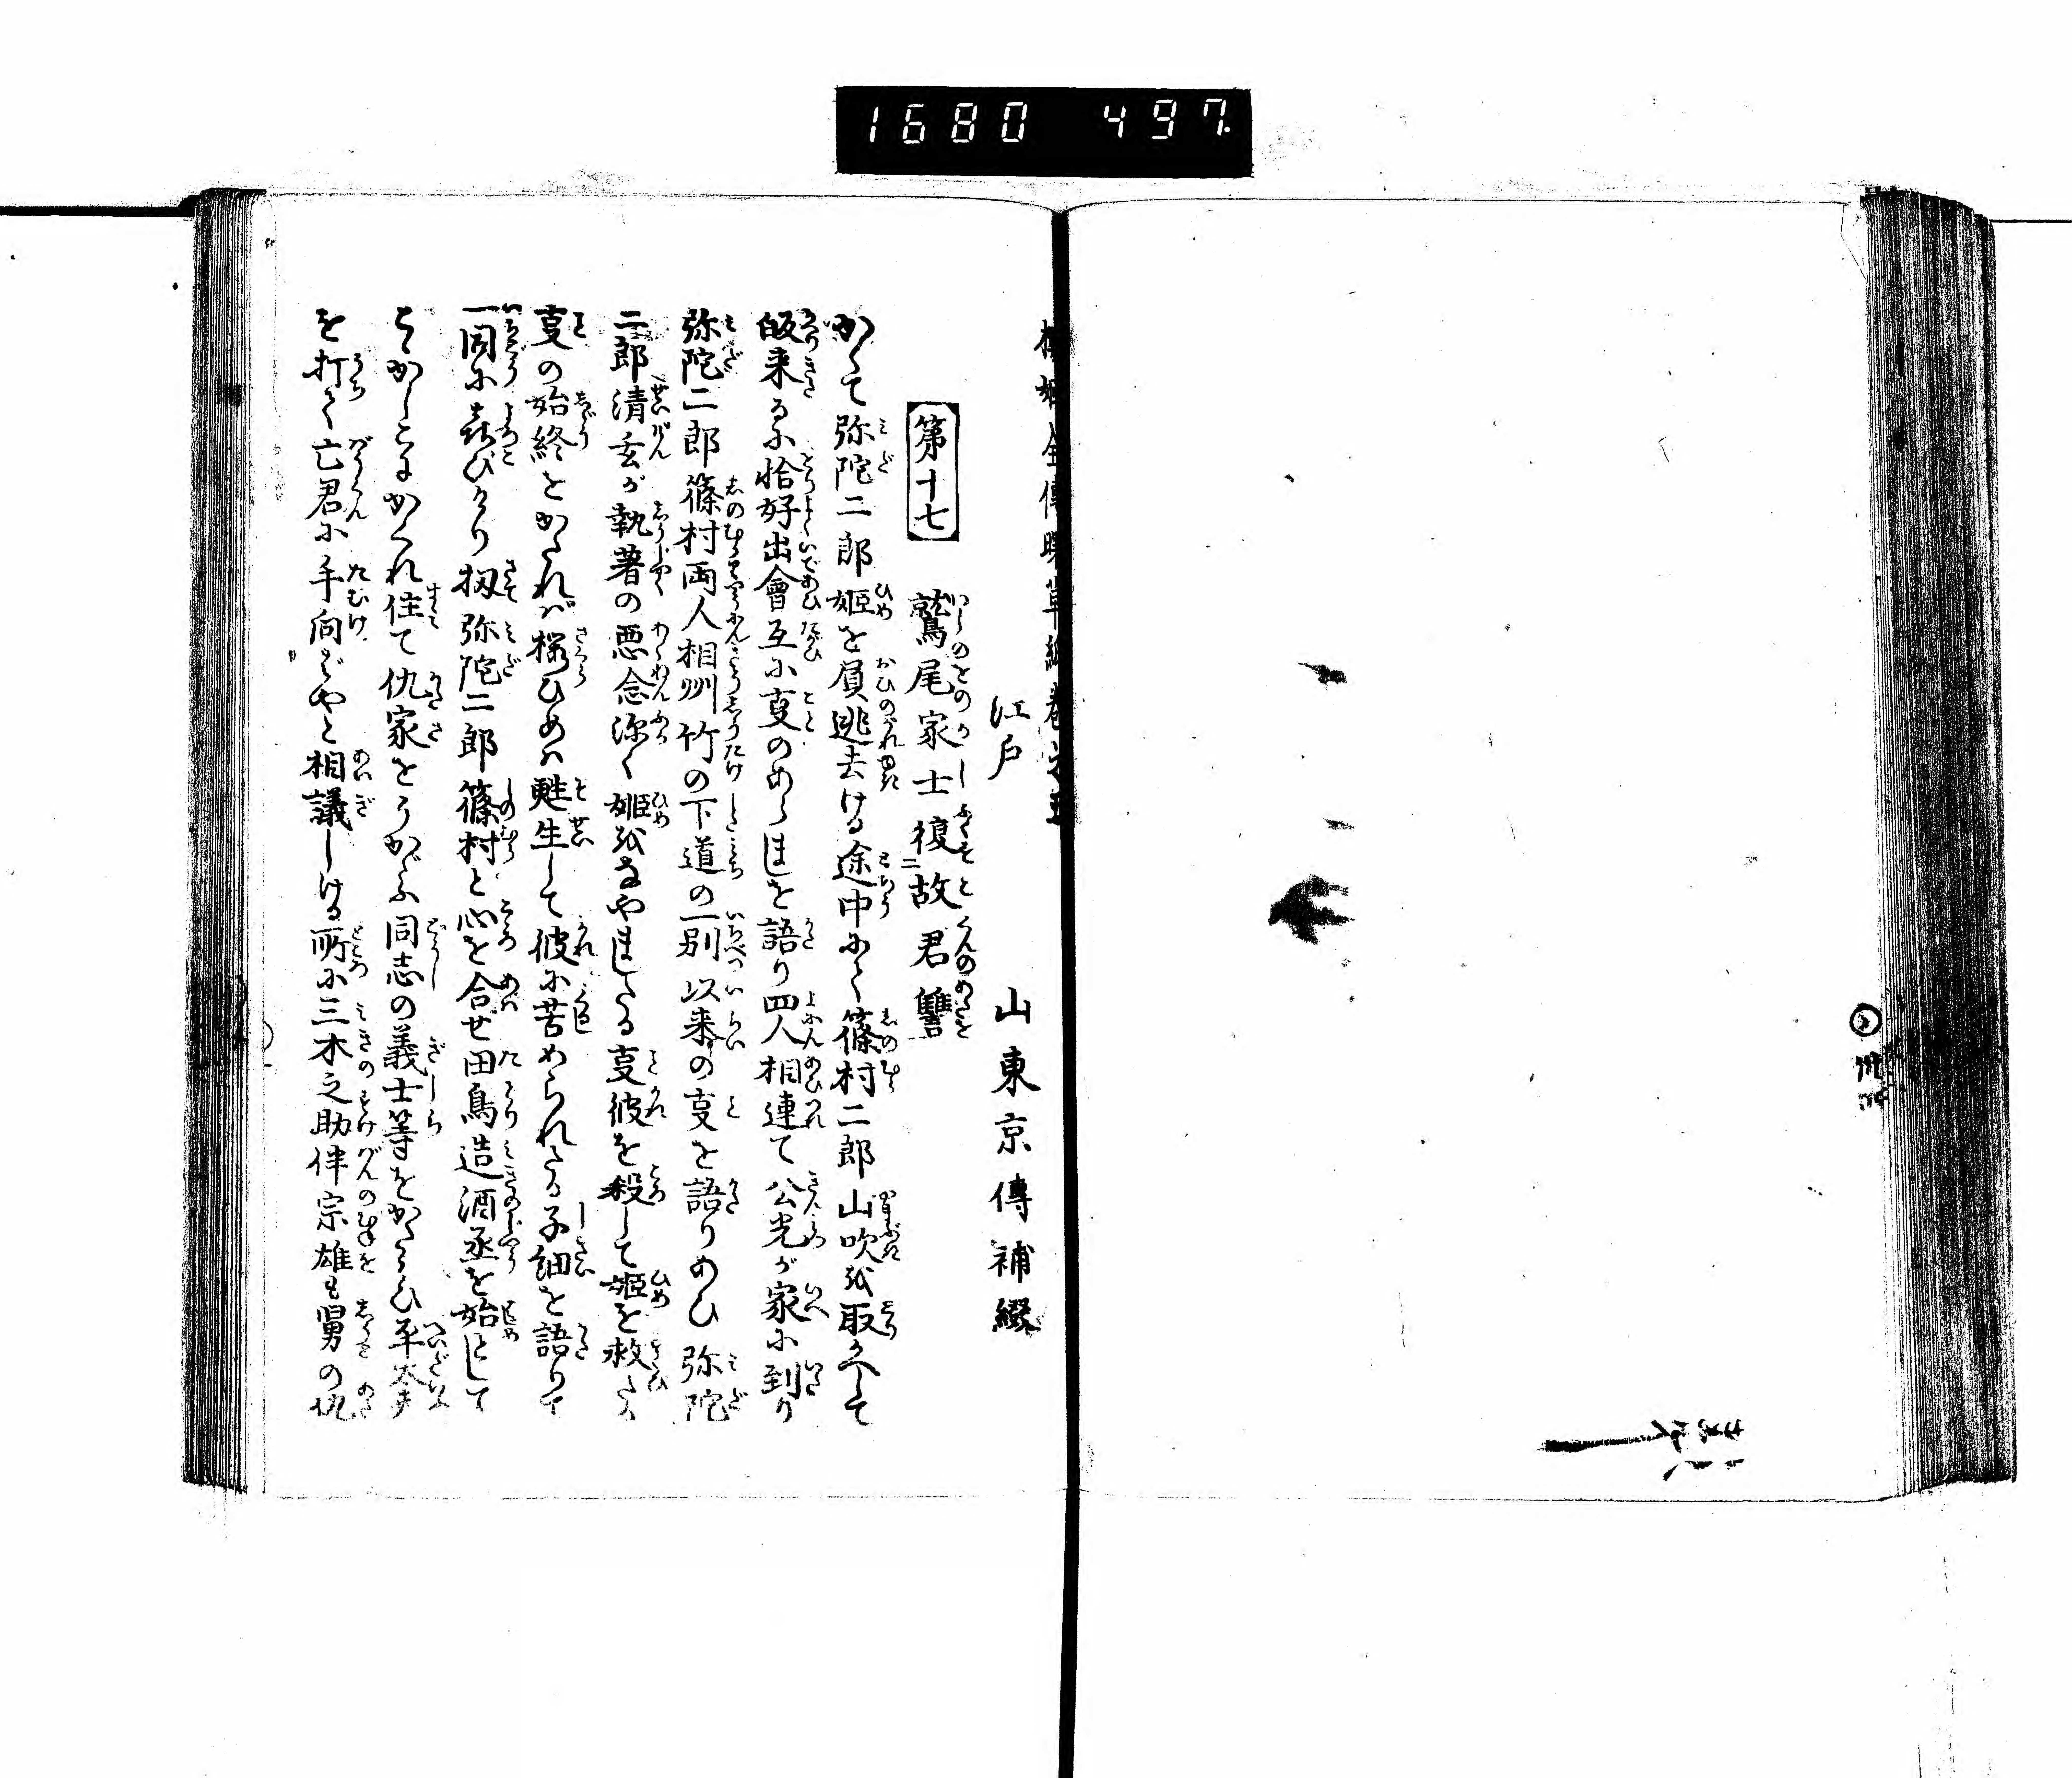 1680 497
桜姫全傳曙草紙巻之五
江戸 山東京傳補綴
第十七 鷲尾家士復二故君讐
かくて弥陀二郎姫を負逃去ける途中にて篠村二郎山吹を取かへして
皈来るに恰好出會互に㕝のあらましを語り四人相連て公光が家に到り
弥陀二郎篠村両人相州竹の下道の一別以来の㕝を語りあひ弥陀
二郎清玄が執着の悪念深く姫をなやましたる㕝彼を殺して姫を救たる
㕝の始終をかたれば桜ひめは甦生して彼に苦められたる子細を語りて
一同に喜びけり扨弥陀二郎篠村と心を合せ田鳥造酒丞を始として
こゝかしこにかくれ住て仇家をうかゞふ同志の義士等をかたらひ平太夫
を打て亡君に手向ばやと相議しける所に三木之助伴宗雄も舅の仇